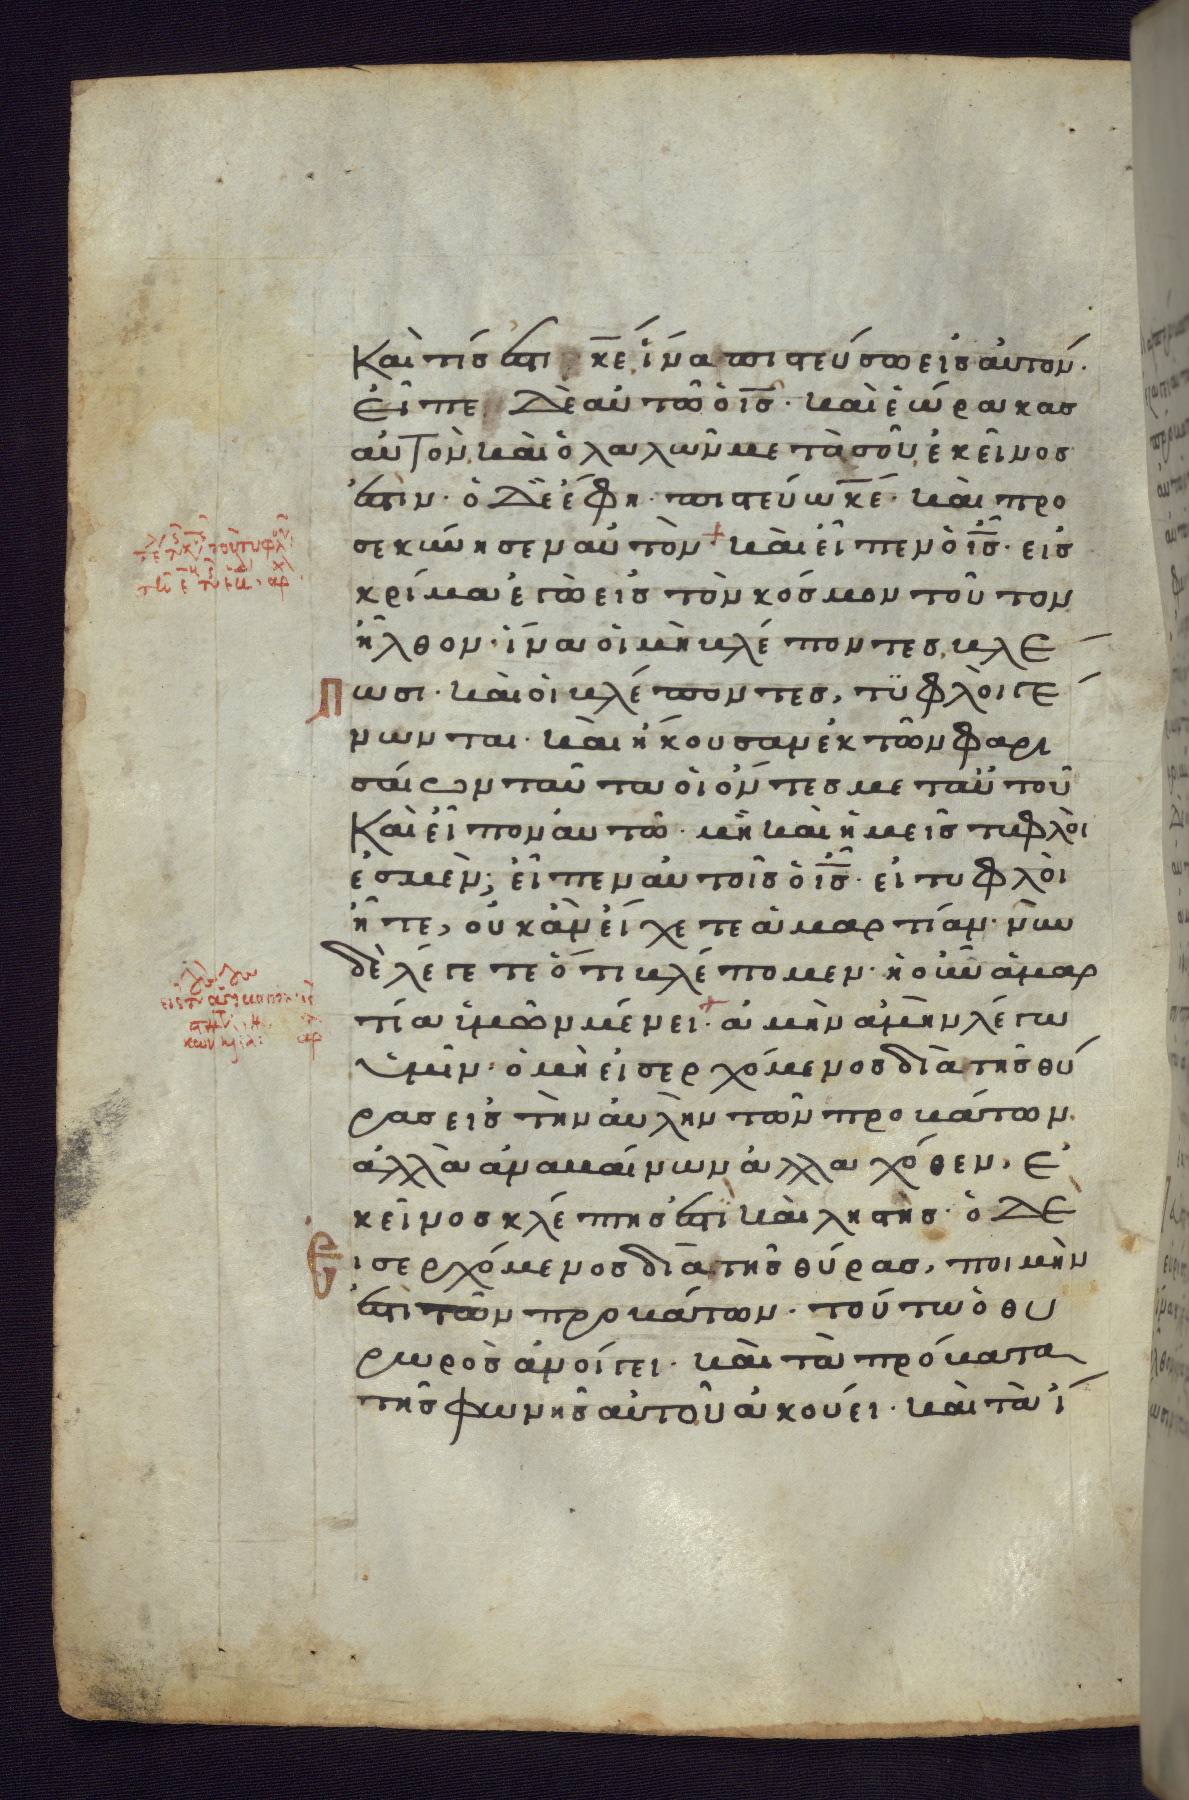 Καὶ τίς ἐστι κ̅ε̅ ἵνα πιστεύσω εἰς αὐτόν·
Εἶπε δὲ αὐτῶ ὁ ι̅ς̅· καὶ ἑώρακας
αὐτὸν, καὶ ὁ λαλῶν μετὰ σοῦ, ἐκεῖνος
ἐστιν· ὁ δὲ ἔφη· πιστεύω κ̅ε̅· καὶ προ
σεκύνησεν αὐτόν + καὶ εἶπεν ὁ ι̅ς̅· εἰς
κρίμα ἐγὼ εἰς τὸν κόσμον τοῦτον
ἦλθον· ἵνα οἱ μὴ βλέποντες, βλέ
πωσι· καὶ οἱ βλέποντες, τϋφλοὶ γέ
νωνται· καὶ ἤκουσαν ἐκ τῶν φαρι
σαίων ταῦτα οἱ ὄντες μετ αὐτοῦ
Καὶ εἶπον αὐτῶ· μὴ καὶ ἡμεῖς τυφλοὶ
ἐσμέν; εἶπεν αὐτοῖς ὁ ι̅ς̅· εἰ τυφλοὶ
ἦτε, οὐκ ἂν εἴχετε ἁμαρτίαν· νῦν
δὲ λέγετε ὅτι βλέπομεν· ἡ οὖν ἁμαρ
τία ὑμῶν μένει· + ἀμὴν ἀμὴν λέγω
ὑμῖν· ὁ μὴ εἰσερχόμενος διὰ τῆς θύ
ρας εἰς τὴν αὐλὴν τῶν προβάτων
ἀλλὰ ἀναβαίνων ἀλλαχόθεν, ἐ
κεῖνος κλέπτης ἐστὶ καὶ ληστής· ὁ δὲ
Εἰσερχόμενος διὰ τῆς θύρας, ποιμὴν
ἐστὶ τῶν προβάτων· τούτω ὁ θυ
ρωρὸς ἀνοίγει· καὶ τὰ πρόβατα
τῆς φωνῆς αὐτοῦ ἀκούει· καὶ τὰ ἴ